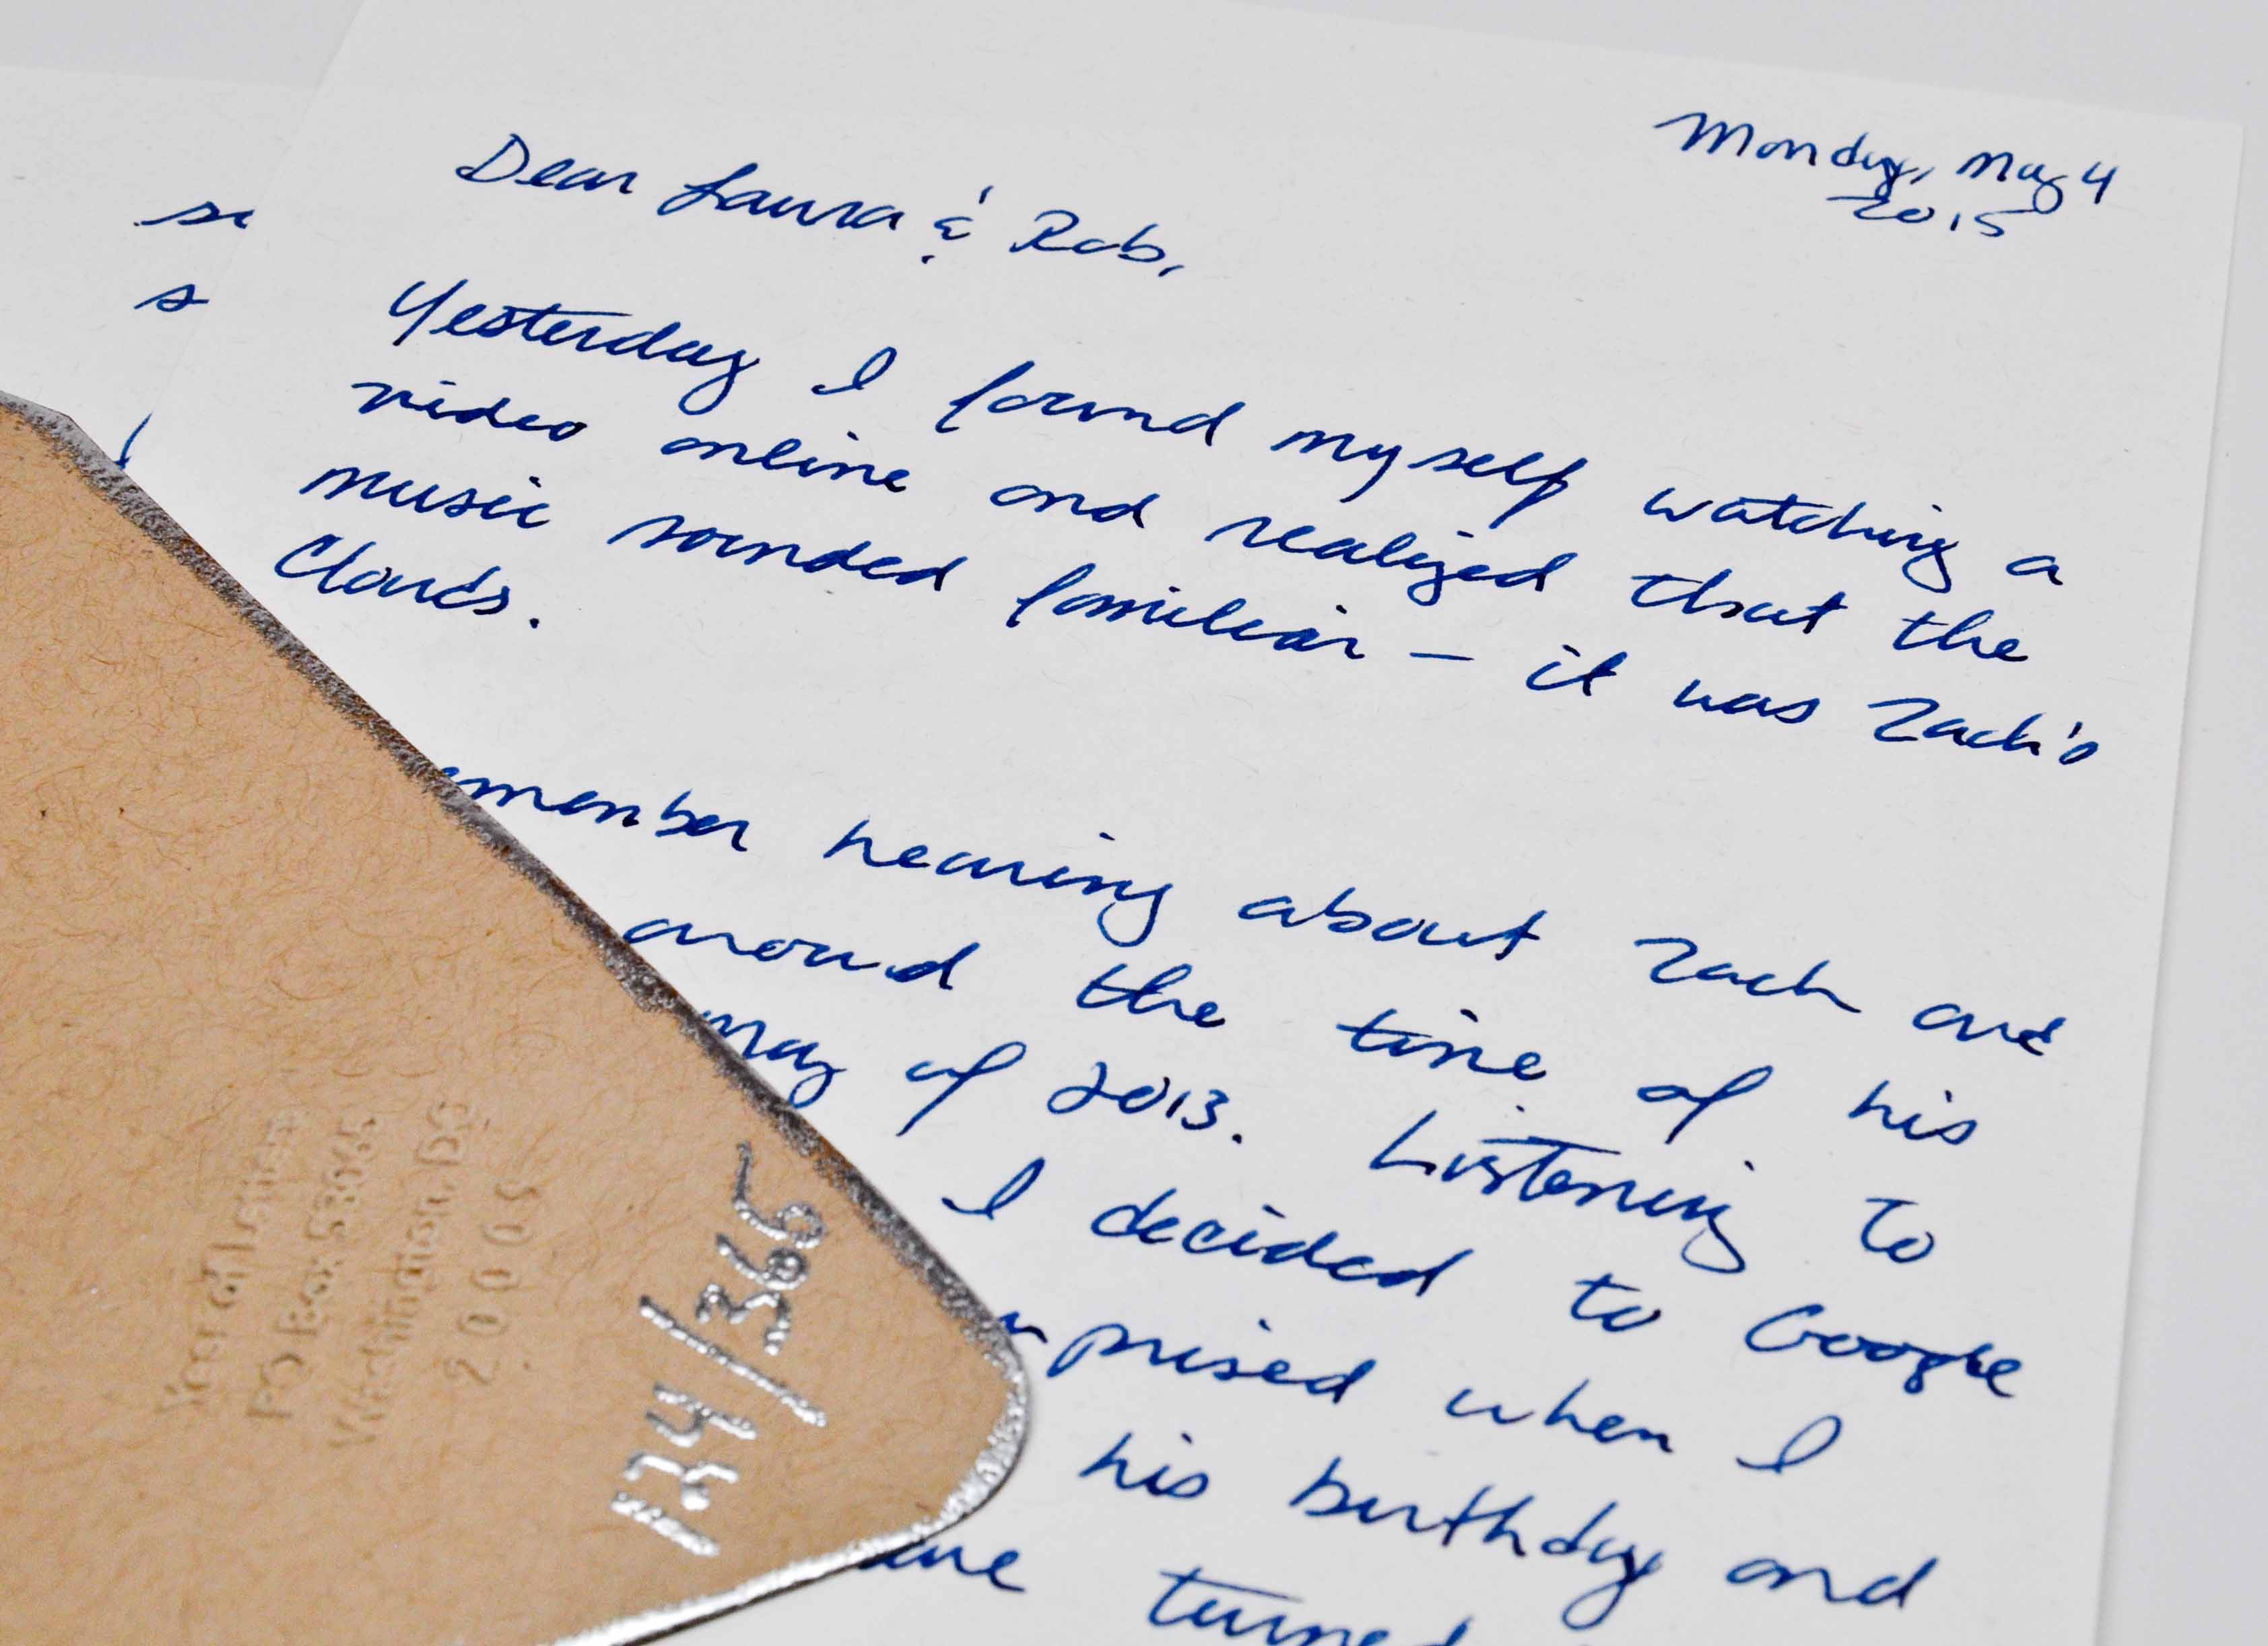 Monday, May 4
2015
Dear Laura & Rob,
Yesterday I found myself watching a
video online and realized that the
music sounded familiar – it was Zach's
Clouds.
member hearing about Zach and
around the time of his
May of 2013. Listening to
I decided to Google
prised when I
his birthday and
turned
Year of Letters
PO Box 53065
Washington, DC
20009
124/365